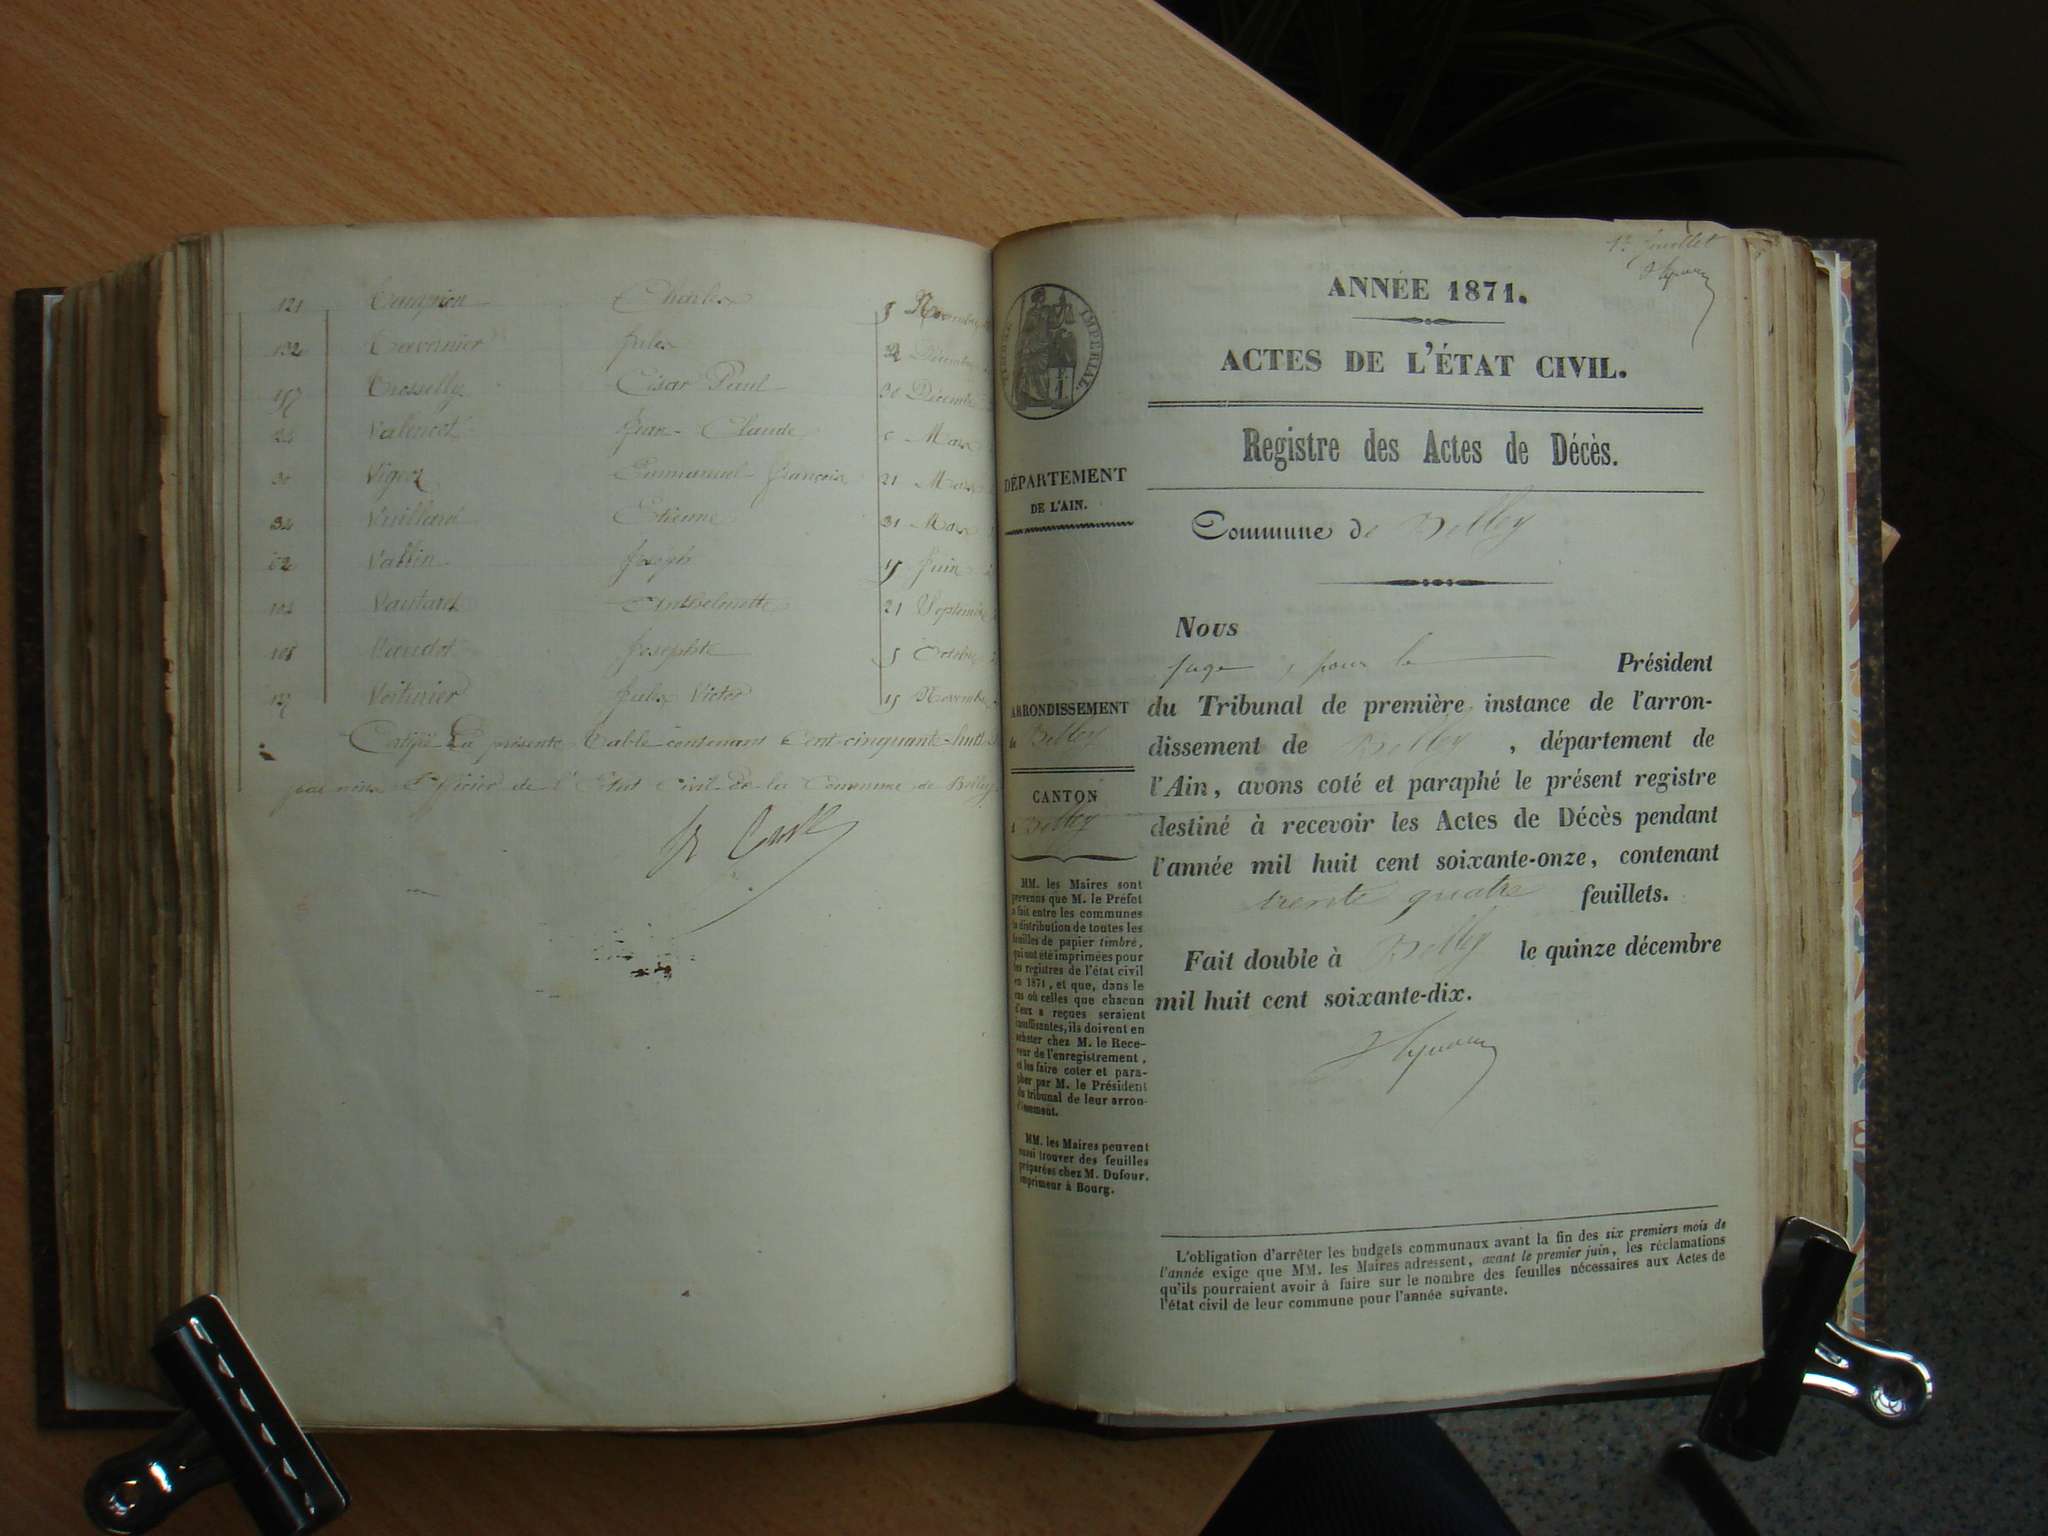 121 Campion Charles 8 Novembre
132 Cuvinier Jules Décembre
157 Crosselly César Paul 30 Décembre
Valencot Jean-Claude 5 Mars
30 Viger Emmanuel françois 21 Mars
34 Vuillard Etienne 31 Mars
62 Vallin Joseph 15 Juin
104 Vautard Anthelmette 21 Septembre
108 Vaudot Josephte 5 Octobre
137 Voiturier Jules Victor 15 Novembre
Certifié La présente Table contenant Cent cinquante-huit
par nous Officier de l'Etat Civil de la Commune de Belley
1er feuillet
TIMBRE IMPÉRIAL.
ANNÉE 1871.
ACTES DE L'ÉTAT CIVIL.
Registre des Actes de Décès.
DÉPARTEMENT
DE L'AIN.
Commune de Belley
ARRONDISSEMENT
de Belley
CANTON
d Belley
MM. les Maires sont
prévenus que M. le Préfet
a fait entre les communes
la distribution de toutes les
feuilles de papier timbré,
qui ont été imprimées pour
les registres de l'état civil
en 1871, et que, dans le
cas où celles que chacun
d'eux a reçues seraient
insuffisantes, ils doivent en
acheter chez M. le Rece-
veur de l'enregistrement,
et les faire coter et para-
pher par M. le Président
du tribunal de leur arron-
dissement.
MM. les Maires peuvent
aussi trouver des feuilles
préparées chez M. Dufour,
imprimeur à Bourg.
Nous
juge, pour le Président
du Tribunal de première instance de l'arron-
dissement de Belley, département de
l'Ain, avons coté et paraphé le présent registre
destiné à recevoir les Actes de Décès pendant
l'année mil huit cent soixante-onze, contenant
trente quatre feuillets.
Fait double à Belley le quinze décembre
mil huit cent soixante-dix.
L'obligation d'arrêter les budgets communaux avant la fin des six premiers mois de
l'année exige que MM. les Maires adressent, avant le premier juin, les réclamations
qu'ils pourraient avoir à faire sur le nombre des feuilles nécessaires aux Actes de
l'état civil de leur commune pour l'année suivante.